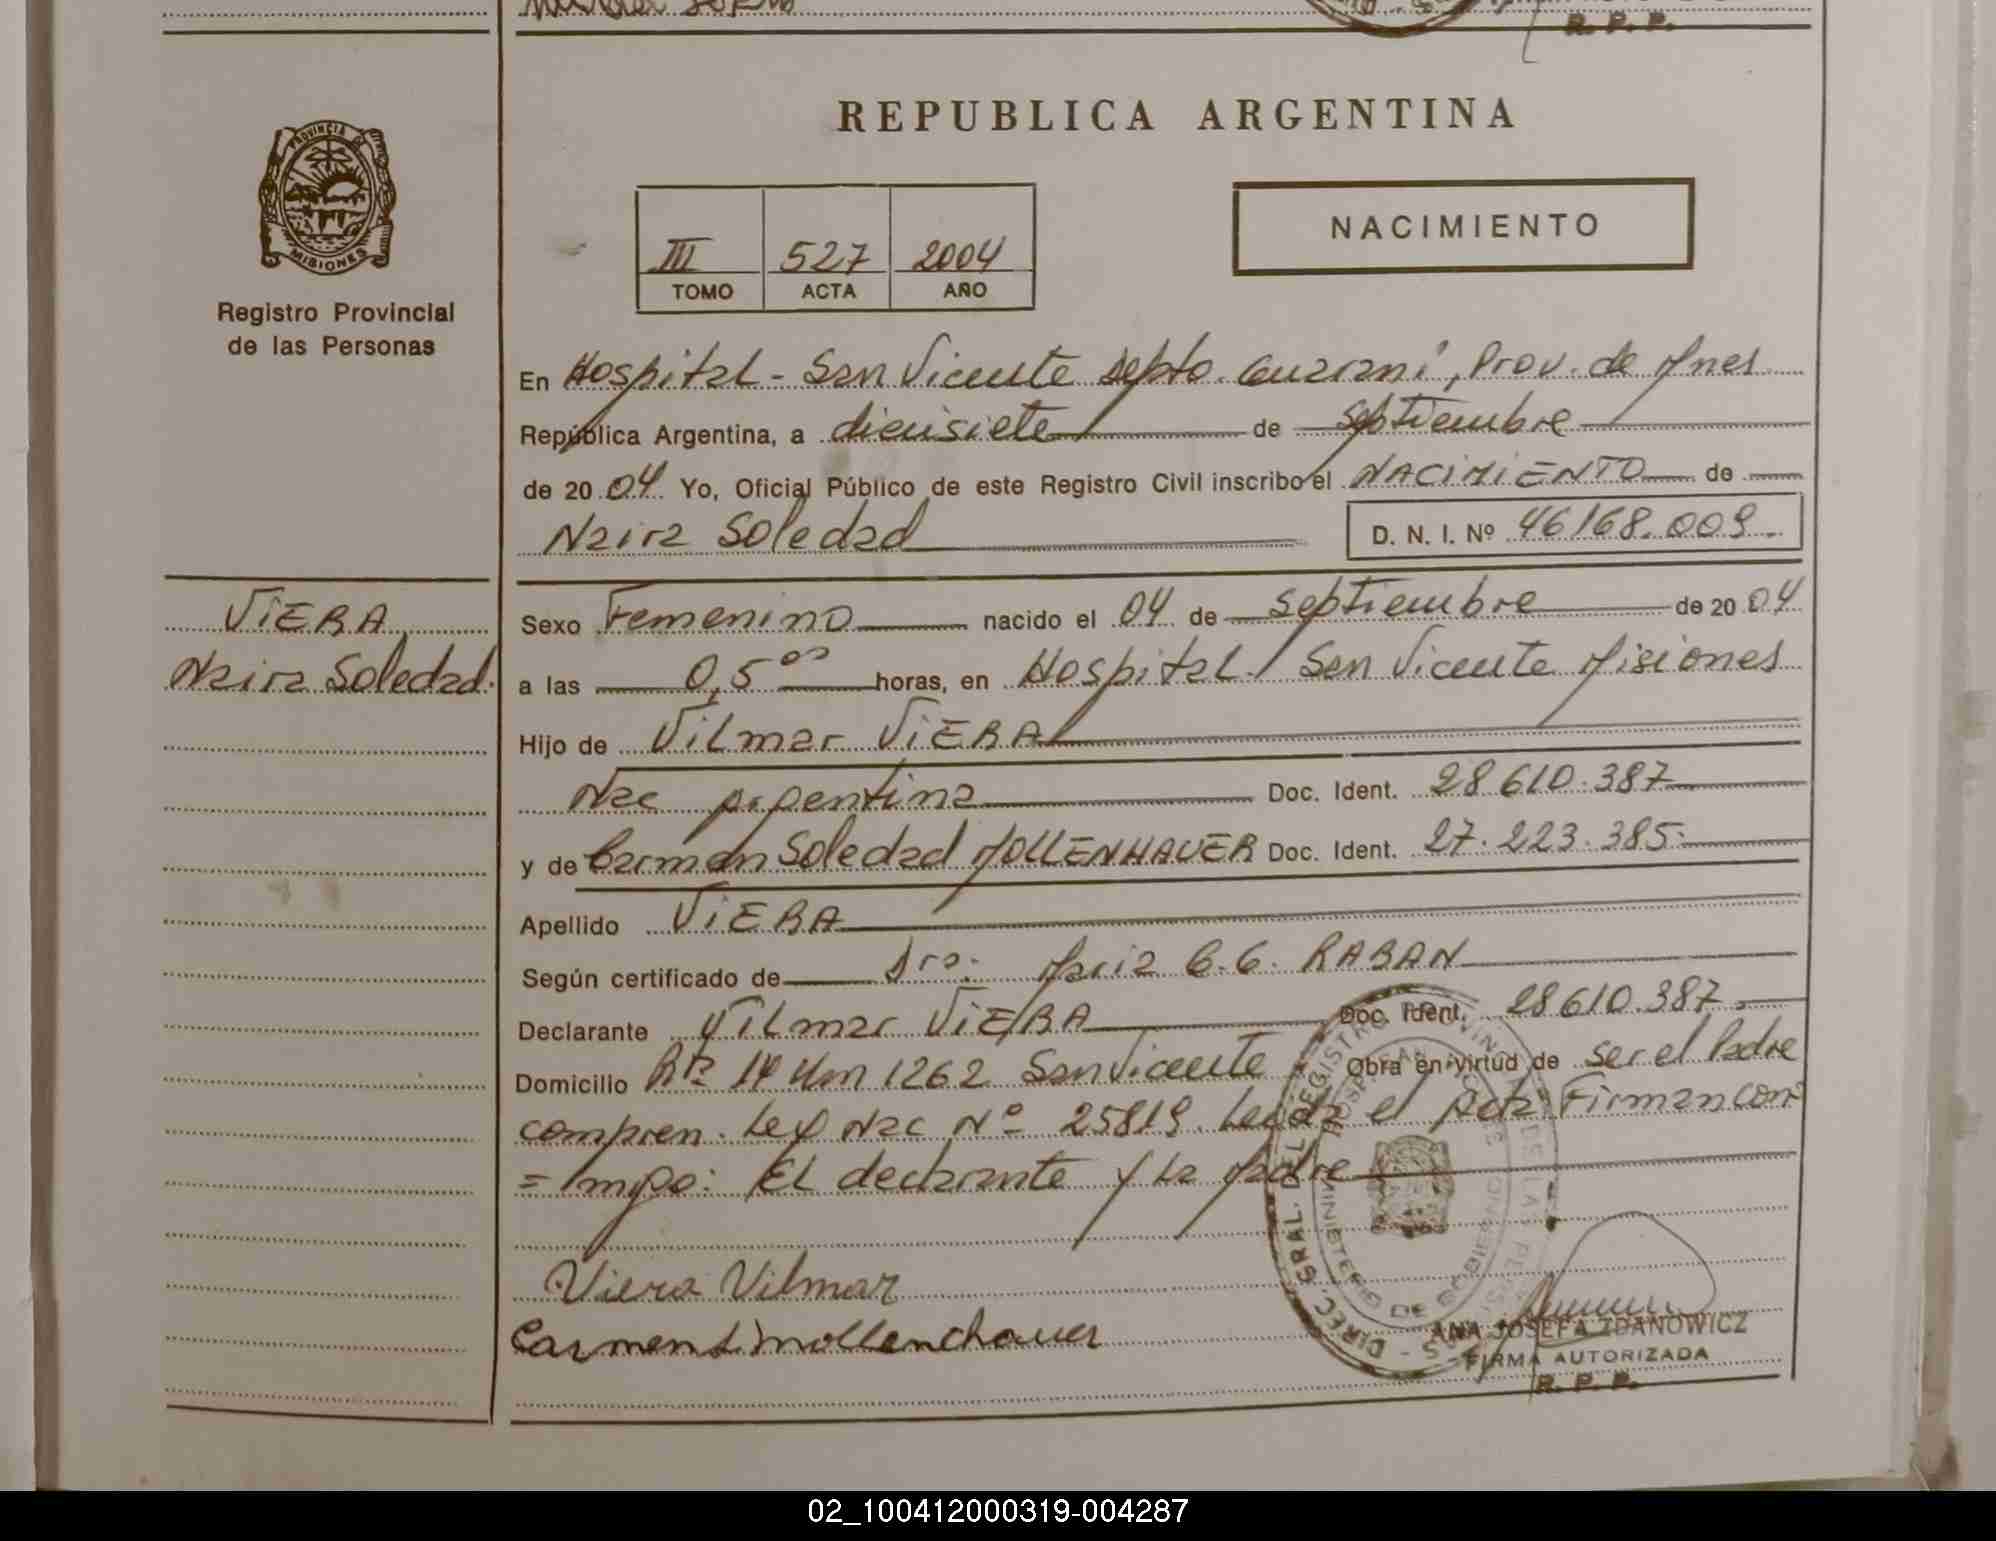 R. P. P.
REPUBLICA ARGENTINA
PROVINCIA DE
MISIONES
Registro Provincial
de las Personas
NACIMIENTO
III 527 2004
TOMO ACTA AÑO
En Hospital - San Vicente Depto. Guarani, Prov. de Mnes
República Argentina, a diecisiete de Septiembre
de 2004 Yo, Oficial Público de este Registro Civil inscribo el NACIMIENTO de
Naira Soledad D. N. I. Nº 46168.009
VIERA
Naira Soledad.
Sexo Femenino nacido el 04 de Septiembre de 2004
a las 0,5 ºº horas, en Hospital San Vicente Misiones
Hijo de Vilmar VIERA
Nac Argentina Doc. Ident. 28610.387
y de Carmen Soledad MOLLENHAUER Doc. Ident. 27.223.385
Apellido VIERA
Según certificado de Dra. Maria C.G. RABAN
Declarante Vilmar VIERA Doc. Ident. 28610.387
Domicilio Rta 14 Km 1262 San Vicente Obra en virtud de ser el Padre
compren. Ley Nac Nº 25819. Leida el Acta Firman con
= migo: El declarante y La Madre
Viera Vilmar
Carmen S. Mollenhauer
DIREC. GRAL. DEL REGISTRO PROVINCIAL DE LAS PERSONAS
MINISTERIO DE GOBIERNO
ANA JOSEFA ZDANOWICZ
FIRMA AUTORIZADA
R. P. P.
02_100412000319-004287